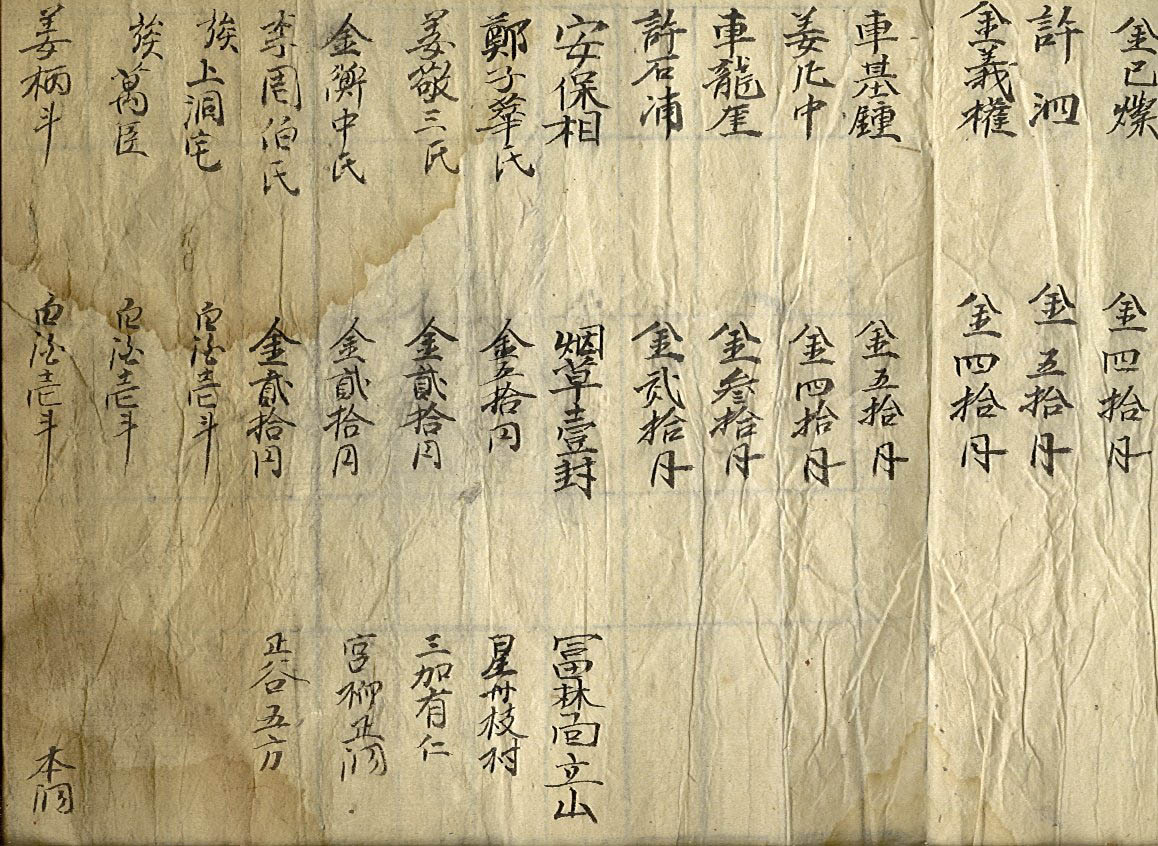 金已燦 金四拾円
許泗 金五拾円
金義權 金四拾円
車基鍾 金五拾円
姜 中 金四拾円
車龍 金參拾円
許石浦 金贰拾円
安保相 烟草壹封 冨林 立山
鄭子華氏 金五拾円 星州枝村
姜敬三氏 金貳拾円 三加有仁
金衡中氏 金貳拾円 宮柳正洞
李周伯氏 金貳拾円 正谷五方
族上洞宅 白酒壱斗
族萬臣 白酒壱斗
姜柄斗 白酒壱斗 本洞